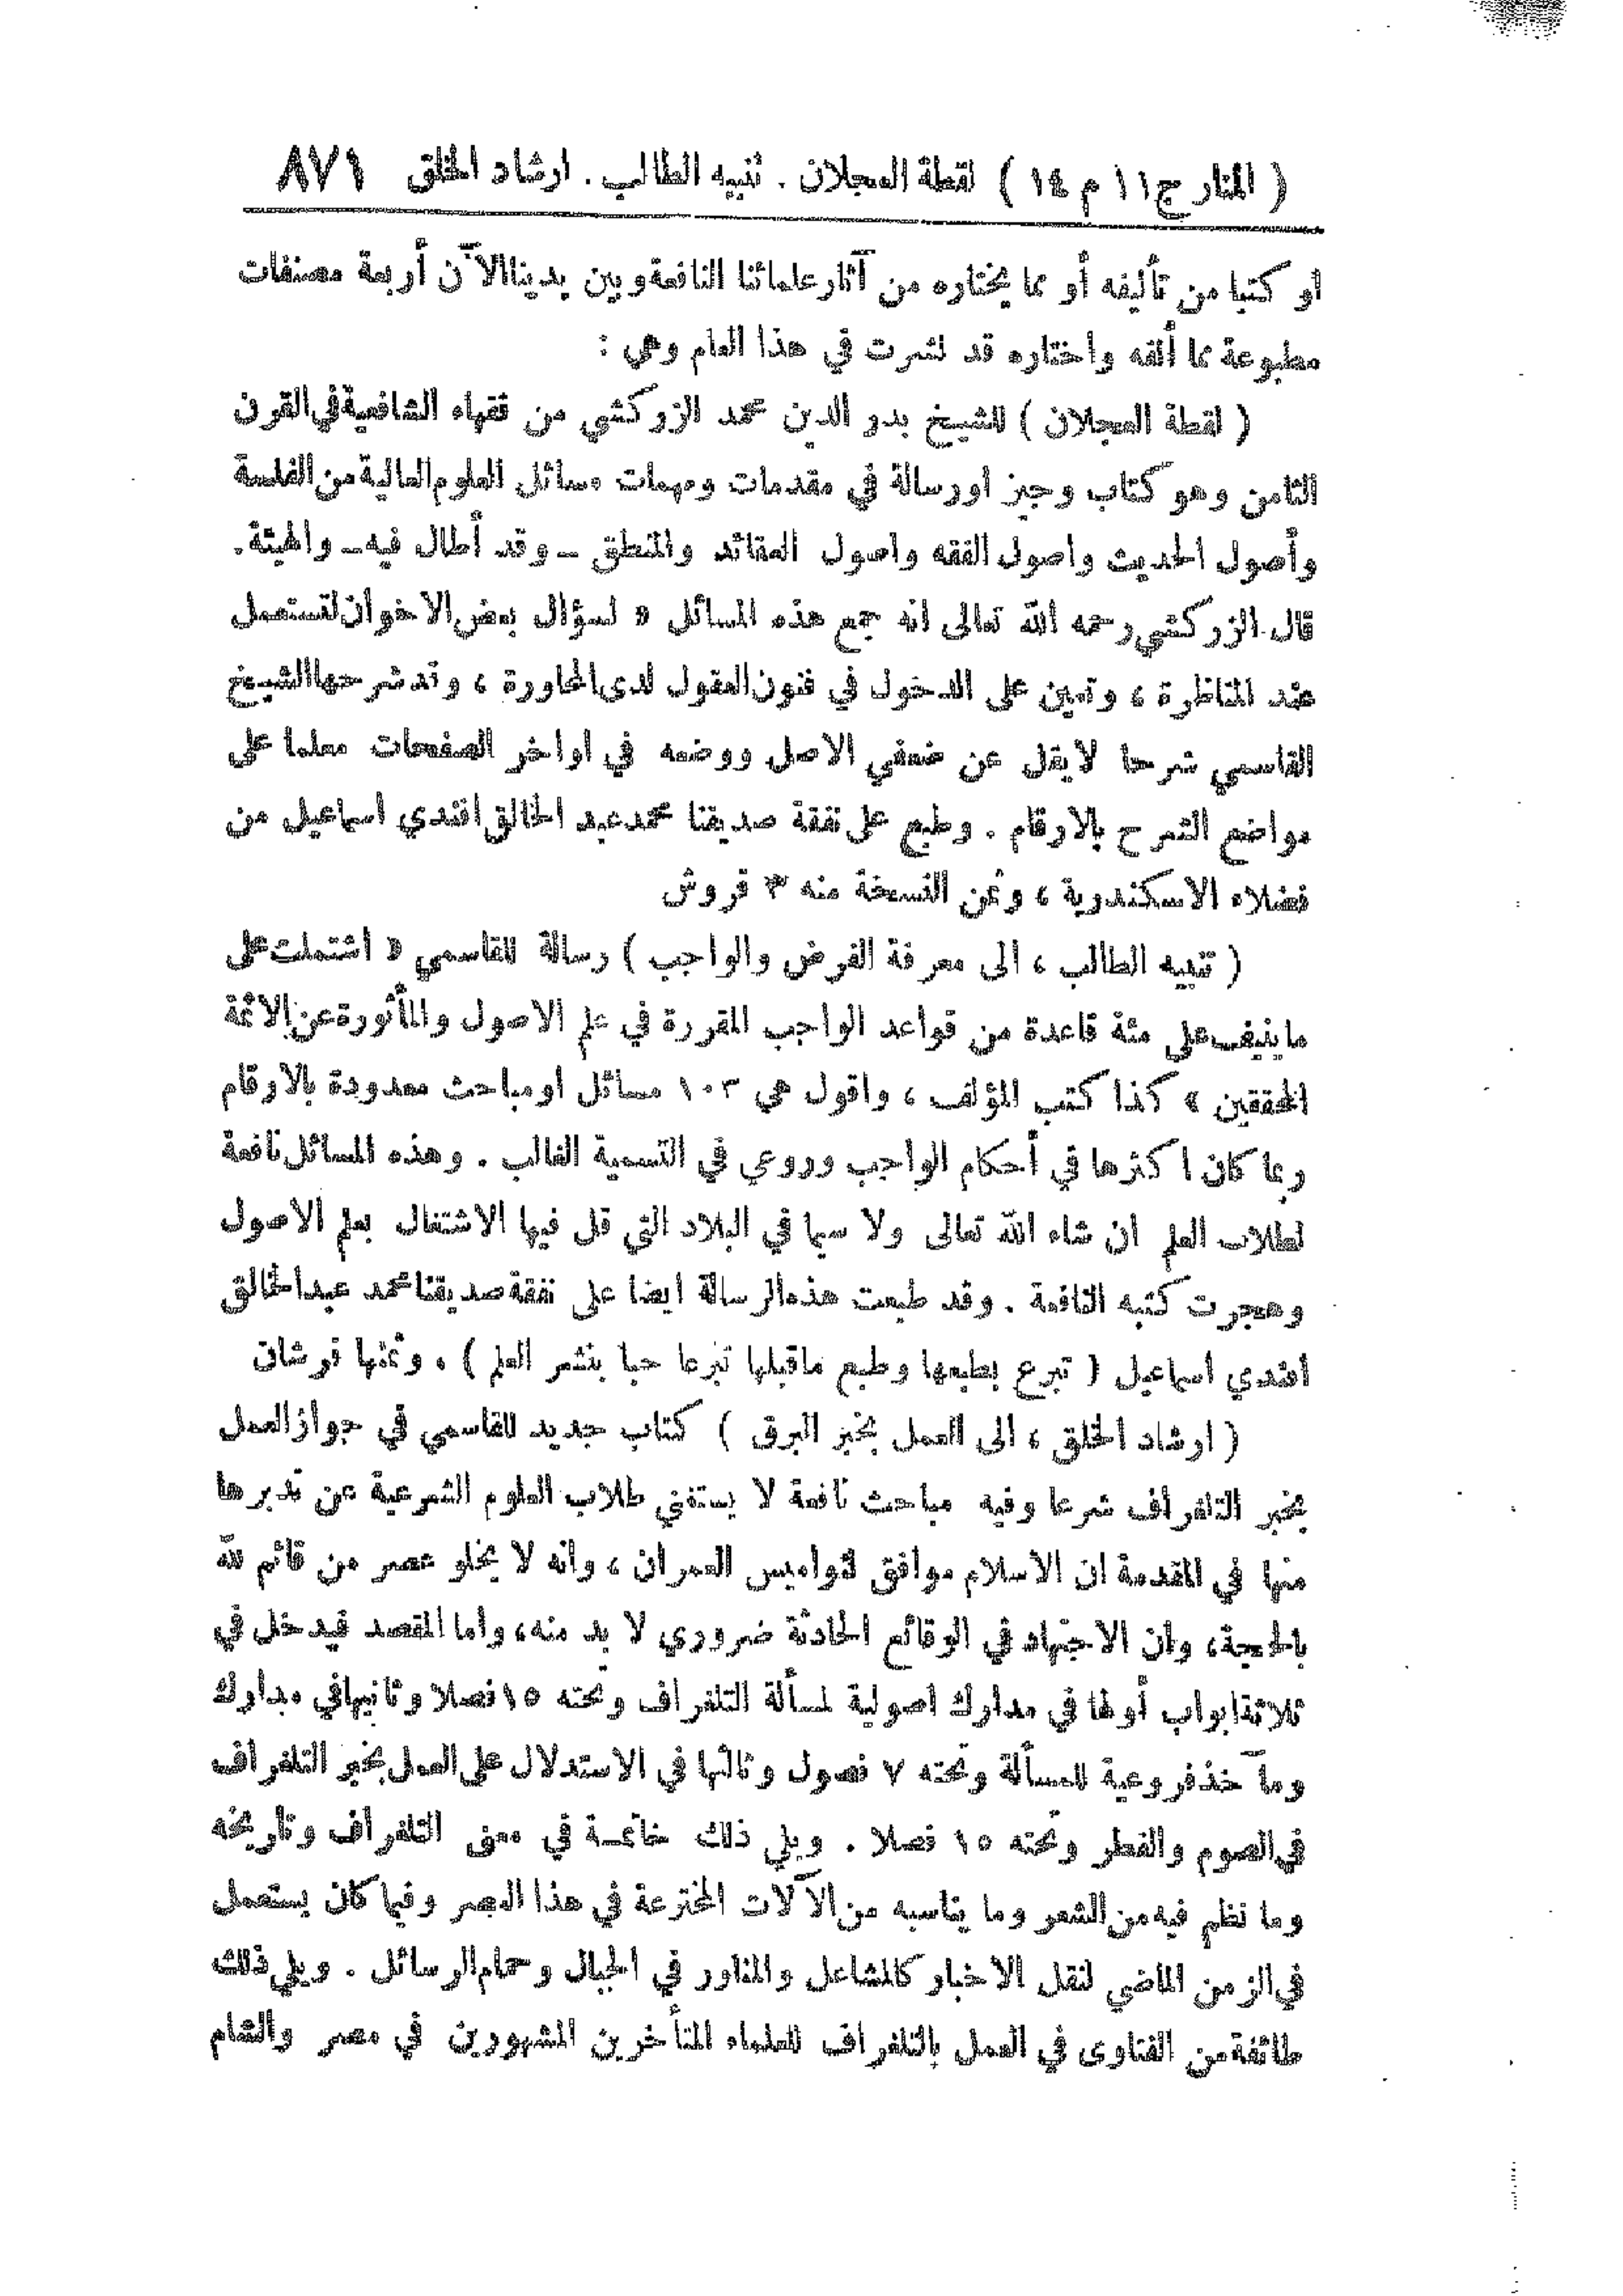 ( المنار ج١١ م ١٤ ) لقطة العجلان . تنبيه الطالب . ارشاد الخلق ٨٧١
او كتبا من تأليفه أو مما يختاره من آثار علمائنا النافعة وبين يدينا الآن أربعة مصنفات
مطبوعة مما ألفه واختاره قد نشرت في هذا العام وهي :
( لقطة العجلان ) للشيخ بدر الدين محمد الزركشي من فقهاء الشافعية في القرن
الثامن وهو كتاب وجيز او رسالة في مقدمات ومهمات مسائل العلوم العالية من الفلسفة
وأصول الحديث واصول الفقه واصول العقائد والمنطق ــ وقد أطال فيه ــ والهيئة.
قال الزركشي رحمه الله تعالى انه جمع هذه المسائل « لسؤال بعض الاخوان لتستعمل
عند المناظرة ، وتعين على الدخول في فنون المعقول لدى المحاورة ، وقد شرحها الشيخ
القاسمي شرحا لا يقل عن ضعفي الاصل ووضعه في اواخر الصفحات معلما على
مواضع الشرح بالارقام . وطبع على نفقة صديقنا محمد عبد الخالق افندي اسماعيل من
فضلاء الاسكندرية ، وثمن النسخة منه ٣ قروش
( تنبيه الطالب ، الى معرفة الفرض والواجب ) رسالة للقاسمي « اشتملت على
ما ينيف على مئة قاعدة من قواعد الواجب المقررة في علم الاصول والمأثورة عن الائمة
المحققين » كذا كتب المؤلف ، واقول هي ١٠٣ مسائل او مباحث معدودة بالارقام
ربما كان اكثرها في أحكام الواجب وروعي في التسمية الغالب . وهذه المسائل نافعة
لطلاب العلم ان شاء الله تعالى ولا سيما في البلاد التي قل فيها الاشتغال بعلم الاصول
وهجرت كتبه النافعة . وقد طبعت هذه الرسالة ايضا على نفقة صديقنا محمد عبد الخالق
افندي اسماعيل ( تبرع بطبعها وطبع ما قبلها تبرعا حبا بنشر العلم ) . وثمنها قرشان
( ارشاد الخلق ، الى العمل بخبر البرق ) كتاب جديد للقاسمي في جواز العمل
بخبر التلغراف شرعا وفيه مباحث نافعة لا يستغني طلاب العلوم الشرعية عن تدبرها
منها في المقدمة ان الاسلام موافق لنواميس العمران ، وانه لا يخلو عصر من قائم لله
بالحجة، وان الاجتهاد في الوقائع الحادثة ضروري لا بد منه، واما المقصد فيدخل في
ثلاثة ابواب أولها في مدارك اصولية لمسألة التلغراف وتحته ١٥ فصلا وثانيها في مدارك
ومآخذ فروعية للمسألة وتحته ٧ فصول وثالثها في الاستدلال على العمل بخبر التلغراف
في الصوم والفطر وتحته ١٥ فصلا . ويلي ذلك خاتمة في معنى التلغراف وتاريخه
وما نظم فيه من الشعر وما يناسبه من الآلات المخترعة في هذا العصر وفيما كان يستعمل
في الزمن الماضي لنقل الاخبار كالمشاعل والمناور في الجبال وحمام الرسائل . ويلي ذلك
طائفة من الفتاوى في العمل بالتلغراف للعلماء المتأخرين المشهورين في مصر والشام